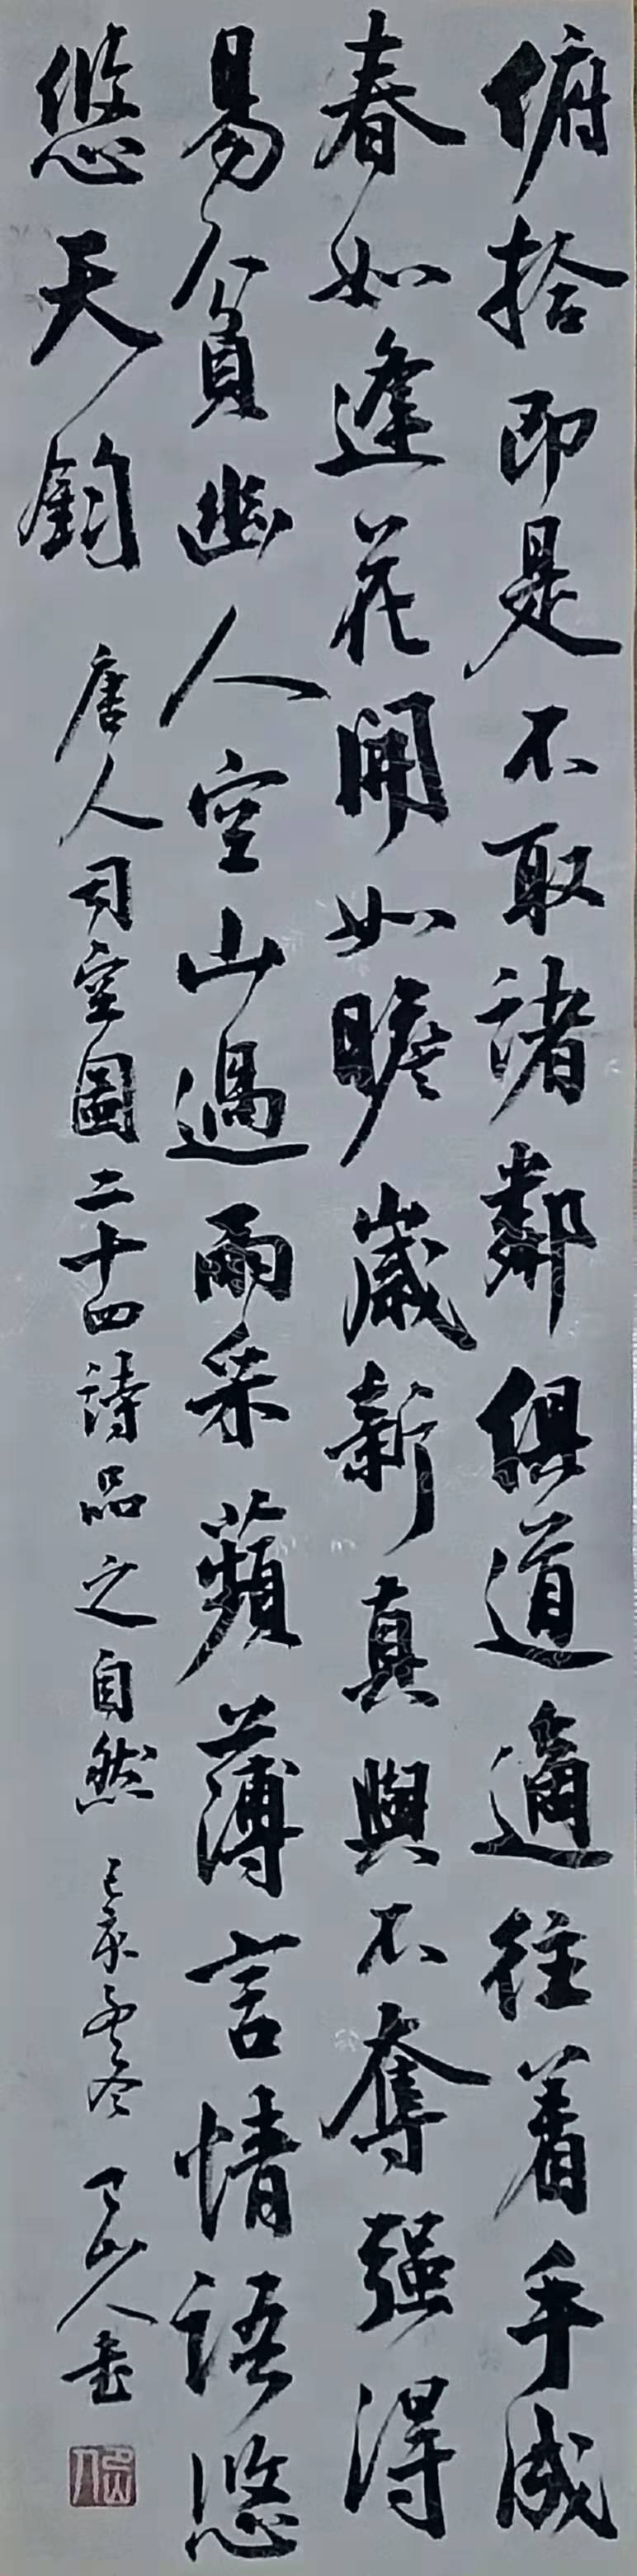 俯拾即是不取諸鄰俱道適往着手成
春如逢花開如瞻歲新真與不奪强得
易貧幽人空山過雨采蘋薄言情語悠
悠天鈞
唐人司空圖二十四詩品之自然 己亥孟冬 山人書